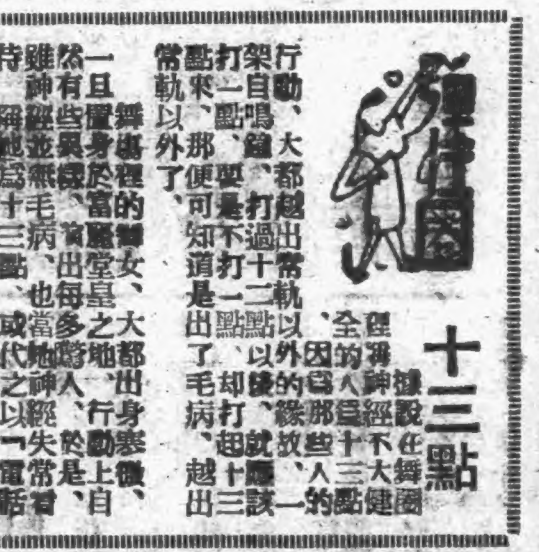 十三點
據說在舞圈
裡稱神經不大健
全的人爲十三點
、因爲那些人的
行動、大都越出常軌以外的緣故、一
架自鳴鐘、打過十二點以後、就應該
打一點、要是不打一點、却打起十三
點來、那便可知道是出了毛病、越出
常軌以外了、
舞場裡的舞女、大都出身寒微、
一旦置身於富麗堂皇之地、行動上自
然有些異樣、演出每多驚人、於是、
雖神經並無毛病、也當她神經失常看
待、稱她爲十三點、或代之以「電話